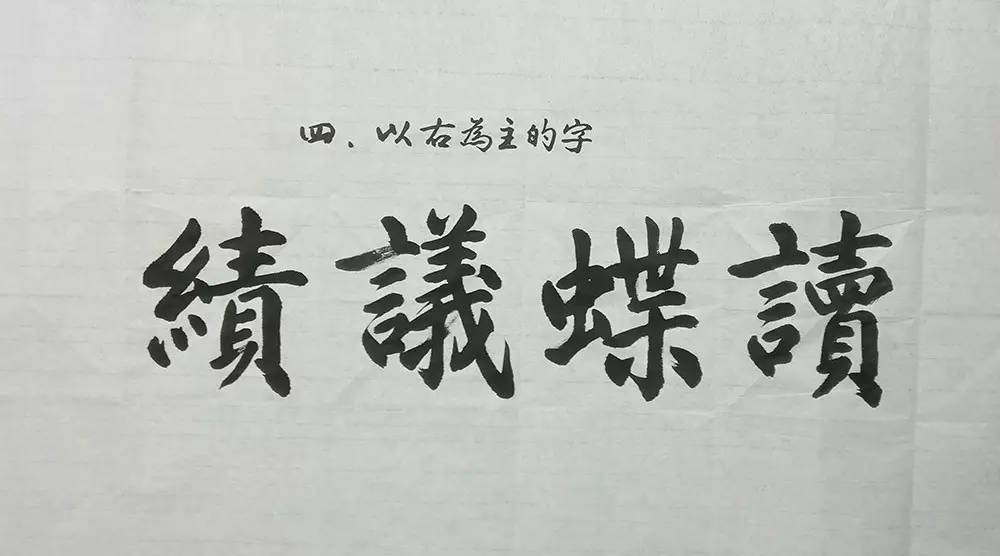 四、以右為主的字
績議蝶讀